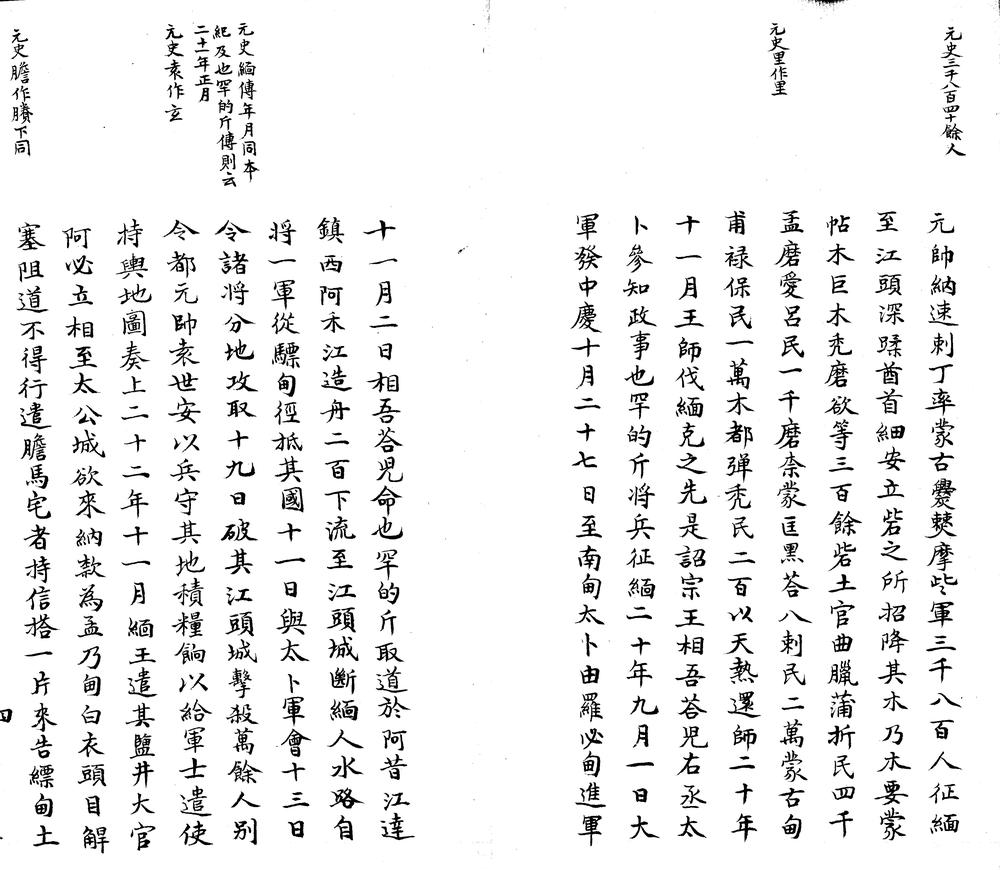 元史三千八百四十餘人
元史里作里
元帥納速剌丁率蒙古爨㸑摩些軍三千八百人征緬
至江頭深蹂酋首細安立砦之所招降其木乃木要蒙
帖木巨木禿磨欲等三百餘砦土官曲臘蒲折民四千
孟磨愛呂民一千磨柰蒙匡黑荅八剌民二萬蒙古甸
甫祿保民一萬木都彈禿民二百以天熱還師二十年
十一月王師伐緬克之先是詔宗王相吾荅児右丞太
卜參知政事也罕的斤將兵征緬二十年九月一日大
軍發中慶十月二十七日至南甸太卜由羅必甸進軍
元史緬傳年月同本
紀及也罕的斤傳則云
二十一年正月
元史袁作玄
元史膽作賸下同
十一月二日相吾荅児命也罕的斤取道於阿昔江達
鎮西阿禾江造舟二百下流至江頭城斷緬人水路自
將一軍從驃甸徑抵其國十一日與太卜軍會十三日
令諸將分地攻取十九日破其江頭城擊殺萬餘人別
令都元帥袁世安以兵守其地積糧餉以給軍士遣使
持輿地圖奏上二十二年十一月緬王遣其鹽井大官
阿必立相至太公城欲來納款為孟乃甸白衣頭目解
塞阻道不得行遣膽馬宅者持信搭一片來告縹甸土
四